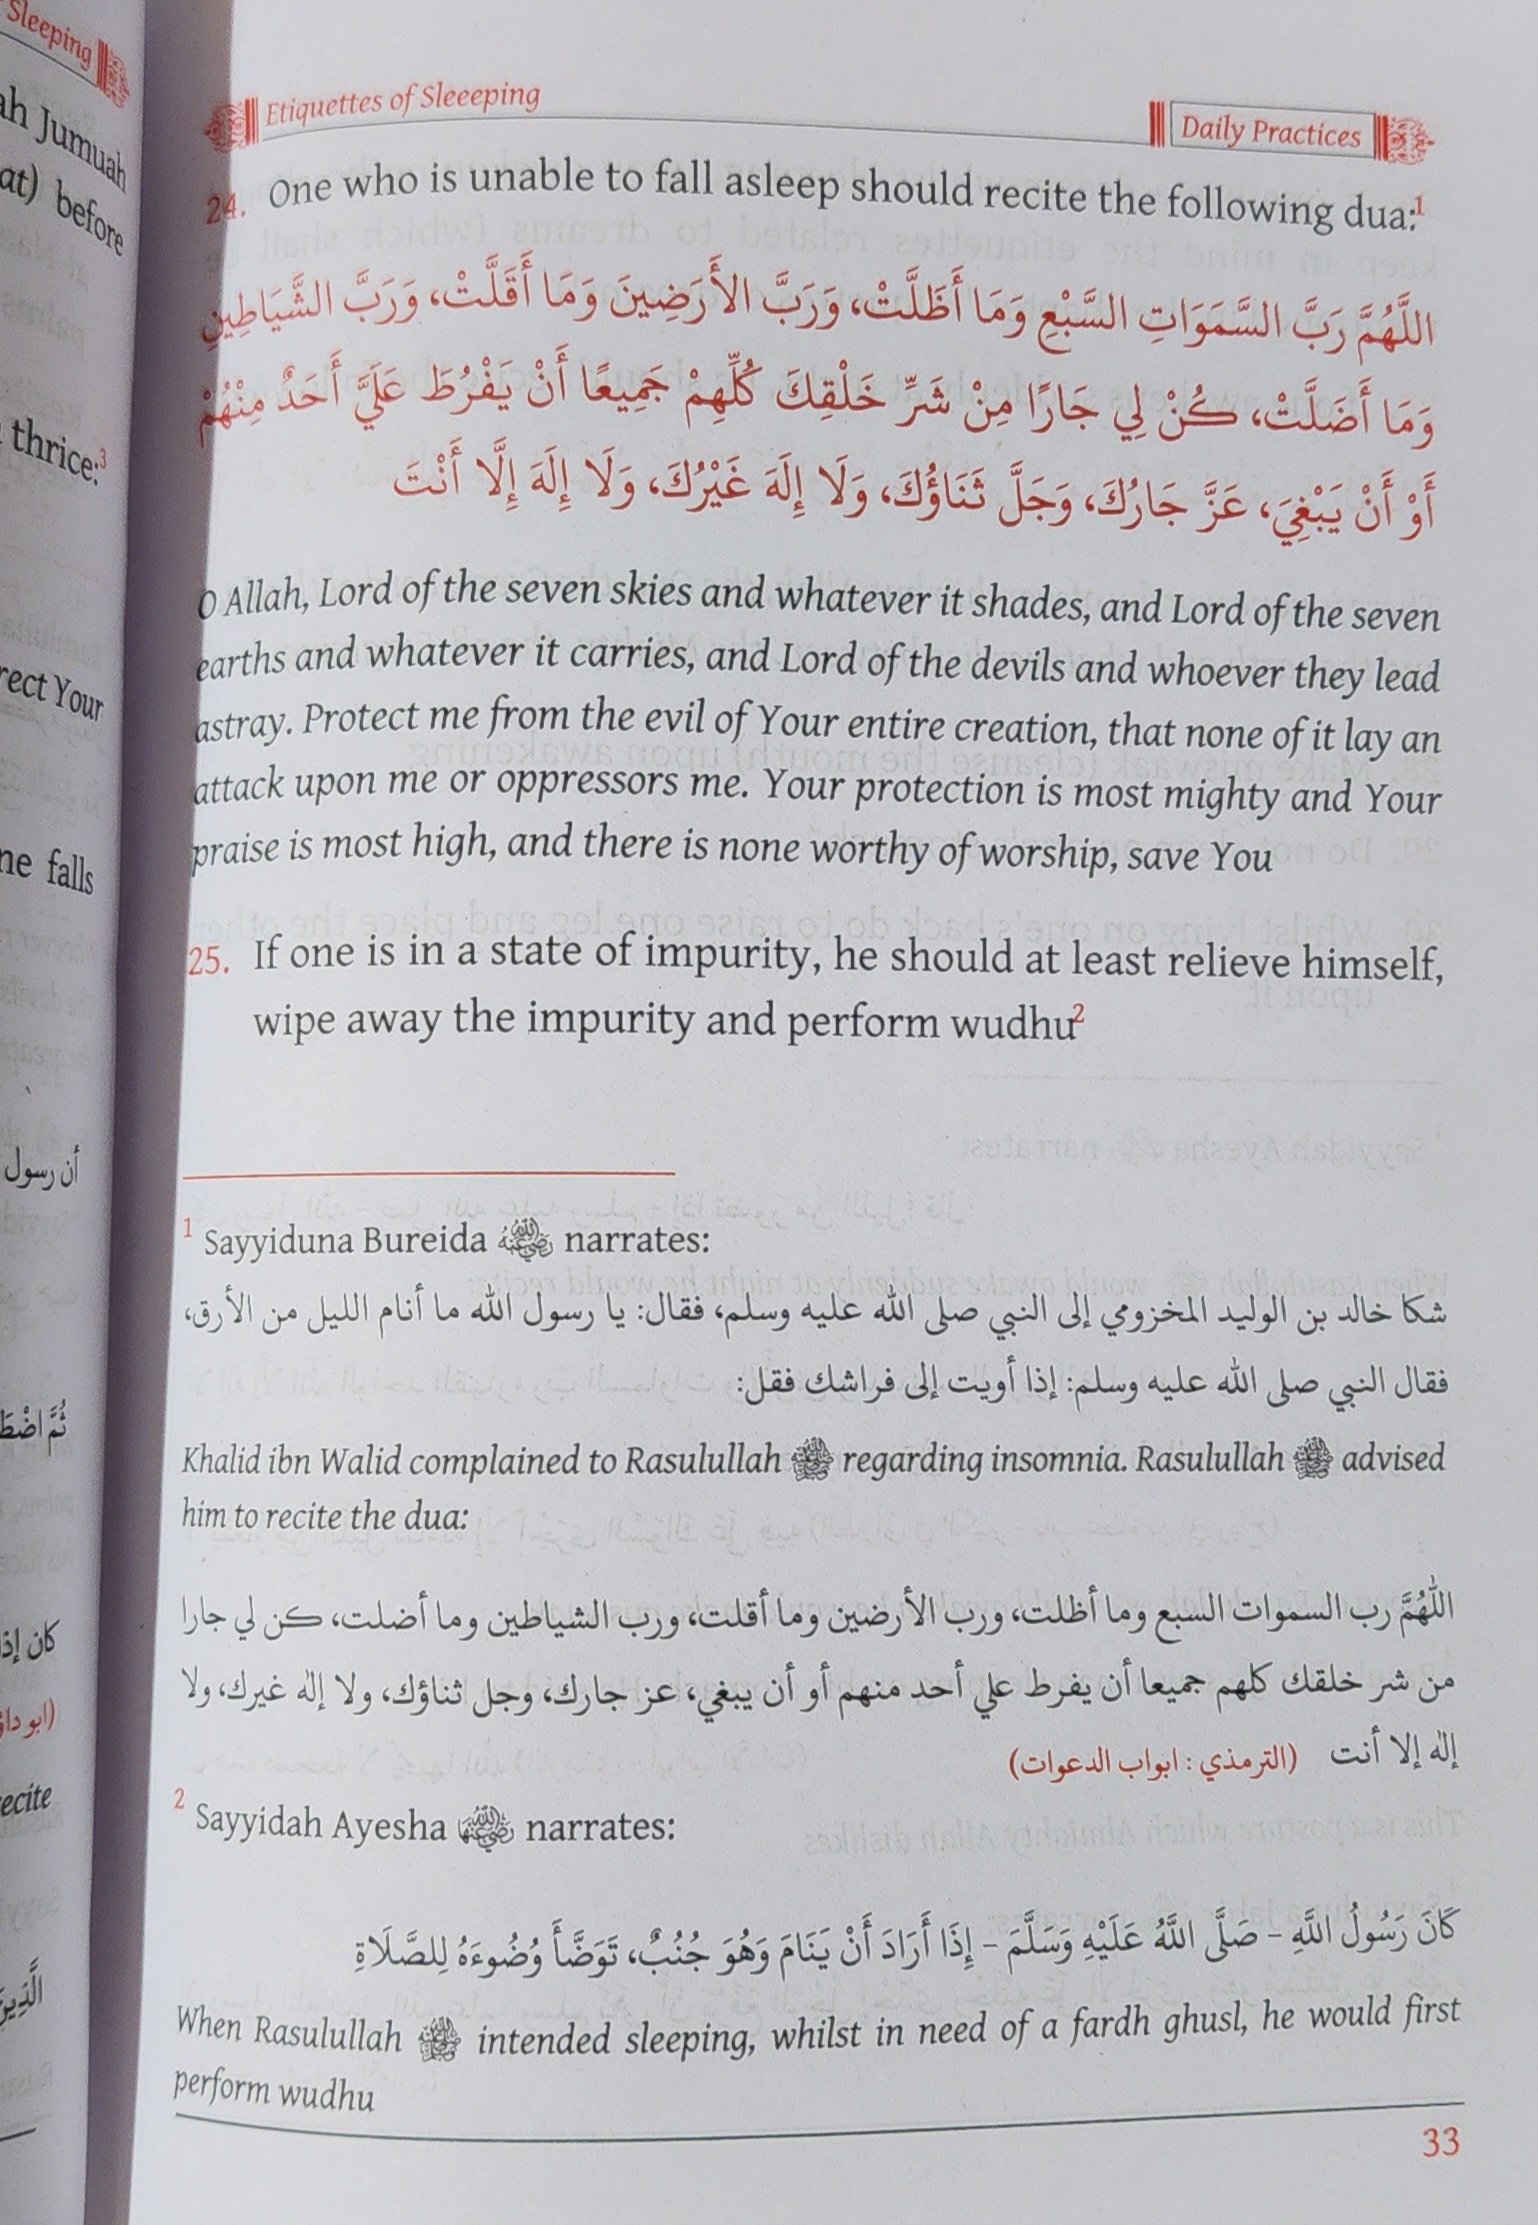 Sleeping
ah Jumuah
at) before
thrice:3
rect Your
ne falls
أن رسول
كان إذ
ecite
Etiquettes of Sleeeping
Daily Practices
24. One who is unable to fall asleep should recite the following dua:1
اللَّهُمَّ رَبَّ السَّمَوَاتِ السَّبْعِ وَمَا أَظَلَّتْ، وَرَبَّ الأَرَضِينَ وَمَا أَقَلَّتْ، وَرَبَّ الشَّيَاطِينِ
وَمَا أَضَلَّتْ، كُنْ لِي جَارًا مِنْ شَرِّ خَلْقِكَ كُلِّهِمْ جَمِيعًا أَنْ يَفْرُطَ عَلَيَّ أَحَدٌ مِنْهُمْ
أَوْ أَنْ يَبْغِيَ، عَزَّ جَارُكَ، وَجَلَّ ثَنَاؤُكَ، وَلَا إِلَهَ غَيْرُكَ، وَلَا إِلَهَ إِلَّا أَنْتَ
O Allah, Lord of the seven skies and whatever it shades, and Lord of the seven
earths and whatever it carries, and Lord of the devils and whoever they lead
astray. Protect me from the evil of Your entire creation, that none of it lay an
attack upon me or oppressors me. Your protection is most mighty and Your
praise is most high, and there is none worthy of worship, save You
25. If one is in a state of impurity, he should at least relieve himself,
wipe away the impurity and perform wudhu2
1 Sayyiduna Bureida رضي الله عنه narrates:
شكا خالد بن الوليد المخزومي إلى النبي صلى الله عليه وسلم، فقال: يا رسول الله ما أنام الليل من الأرق،
فقال النبي صلى الله عليه وسلم: إذا أويت إلى فراشك فقل:
Khalid ibn Walid complained to Rasulullah ﷺ regarding insomnia. Rasulullah ﷺ advised
him to recite the dua:
اللَّهُمَّ رب السموات السبع وما أظلت، ورب الأرضين وما أقلت، ورب الشياطين وما أضلت، كن لي جارا
من شر خلقك كلهم جميعا أن يفرط علي أحد منهم أو أن يبغي، عز جارك، وجل ثناؤك، ولا إله غيرك، ولا
إله إلا أنت (الترمذي : ابواب الدعوات)
2 Sayyidah Ayesha رضي الله عنها narrates:
كَانَ رَسُولُ اللَّهِ - صَلَّى اللَّهُ عَلَيْهِ وَسَلَّمَ - إِذَا أَرَادَ أَنْ يَنَامَ وَهُوَ جُنُبٌ، تَوَضَّأَ وُضُوءَهُ لِلصَّلَاةِ
When Rasulullah ﷺ intended sleeping, whilst in need of a fardh ghusl, he would first
perform wudhu
33